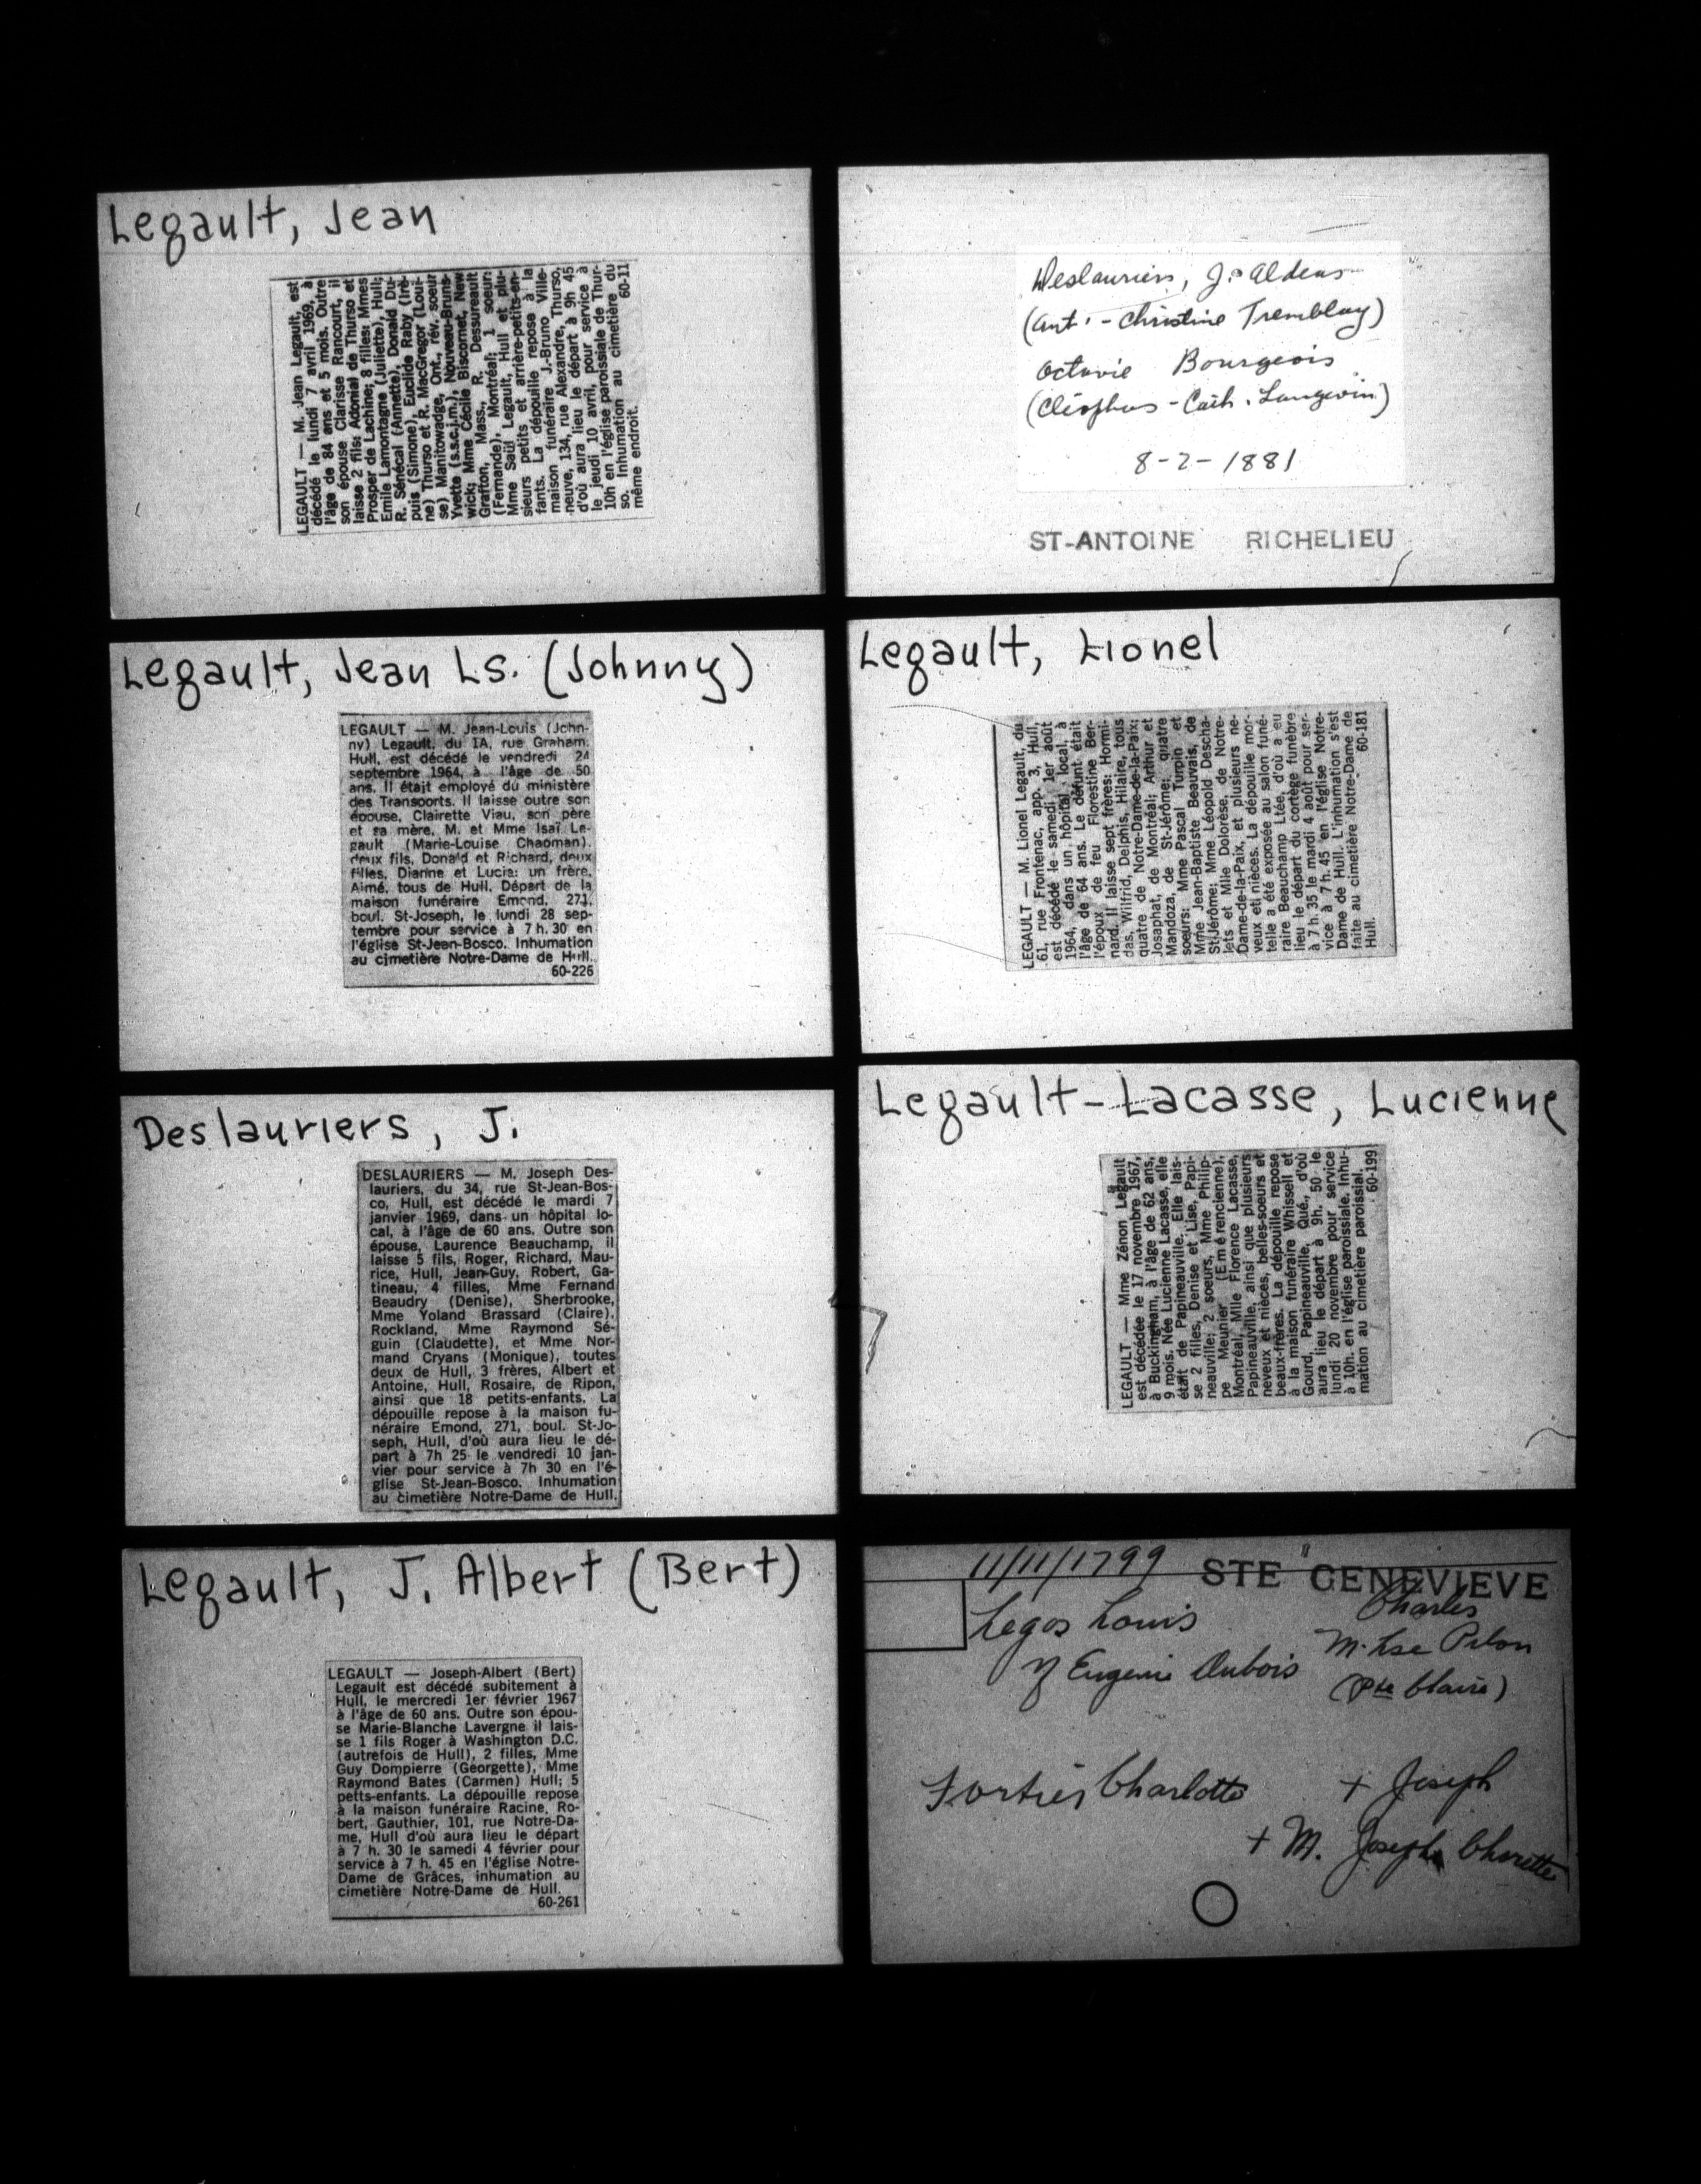 Legault, Jean
LEGAULT — M. Jean Legault, est
décédé le lundi 7 avril 1969, à
l'âge de 84 ans et 5 mois. Outre
son épouse Clarisse Rancourt, il
laisse 2 fils: Adonial de Thurso et
Prosper de Lachine; 8 filles: Mmes
Emile Lamontagne (Juliette), Hull;
R. Sénécal (Annette), Donald Du-
puis (Simone), Euclide Raby (Irè-
ne) Thurso et R. MacGregor (Loui-
se) Manitowadge, Ont., rév. soeur
Yvette (s.s.c.j.m.), Nouveau-Bruns-
wick; Mme Cécile Biscornet, New
Grafton, Mass., R. Dessureault
(Fernande), Montréal; 1 soeur:
Mme Saül Legault, Hull et plu-
sieurs petits et arrière-petits-en-
fants. La dépouille repose à la
maison funéraire J.-Bruno Ville-
neuve, 134, rue Alexandre, Thurso,
d'où aura lieu le départ à 9h 45
le jeudi 10 avril, pour service à
10h en l'église paroissiale de Thur-
so. Inhumation au cimetière du
même endroit. 60-11
Deslauriers, J. Aldeus
(Ant. - Christine Tremblay)
Octavie Bourgeois
(Cléophas - Cath. Langevin)
8-2-1881
ST-ANTOINE RICHELIEU
Legault, Jean Ls. (Johnny)
LEGAULT — M. Jean-Louis (John-
ny) Legault, du 1A, rue Graham,
Hull, est décédé le vendredi 24
septembre 1964, à l'âge de 50
ans. Il était employé du ministère
des Transports. Il laisse outre son
épouse, Clairette Viau, son père
et sa mère, M. et Mme Isaï Le-
gault (Marie-Louise Chapman),
deux fils, Donald et Richard, deux
filles, Dianne et Lucie; un frère,
Aimé, tous de Hull. Départ de la
maison funéraire Emond, 271,
boul. St-Joseph, le lundi 28 sep-
tembre pour service à 7 h. 30 en
l'église St-Jean-Bosco. Inhumation
au cimetière Notre-Dame de Hull.
60-226
Legault, Lionel
LEGAULT — M. Lionel Legault, du
61, rue Frontenac, app. 3, Hull,
est décédé le samedi 1er août
1964, dans un hôpital local, à
l'âge de 64 ans. Le défunt était
l'époux de feu Florestine Ber-
nard. Il laisse sept frères: Hormi-
das, Wilfrid, Delphis, Hilaire, tous
quatre de Notre-Dame-de-la-Paix;
Josaphat, de Montréal; Arthur et
Mandoza, de St-Jérôme; quatre
soeurs: Mme Pascal Turpin et
Mme Jean-Baptiste Beauvais, de
St-Jérôme; Mme Léopold Descha-
lets et Mlle Dolorèse, de Notre-
Dame-de-la-Paix, et plusieurs ne-
veux et nièces. La dépouille mor-
telle a été exposée au salon funé-
raire Beauchamp Ltée, d'où a eu
lieu le départ du cortège funèbre
à 7 h 35 le mardi 4 août pour ser-
vice à 7 h. 45 en l'église Notre-
Dame de Hull. L'inhumation s'est
faite au cimetière Notre-Dame de
Hull. 60-181
Deslauriers, J.
DESLAURIERS — M. Joseph Des-
lauriers, du 34, rue St-Jean-Bos-
co, Hull, est décédé le mardi 7
janvier 1969, dans un hôpital lo-
cal, à l'âge de 60 ans. Outre son
épouse, Laurence Beauchamp, il
laisse 5 fils, Roger, Richard, Mau-
rice, Hull, Jean-Guy, Robert, Ga-
tineau, 4 filles, Mme Fernand
Beaudry (Denise), Sherbrooke,
Mme Yoland Brassard (Claire),
Rockland, Mme Raymond Sé-
guin (Claudette), et Mme Nor-
mand Cryans (Monique), toutes
deux de Hull, 3 frères, Albert et
Antoine, Hull, Rosaire, de Ripon,
ainsi que 18 petits-enfants. La
dépouille repose à la maison fu-
néraire Emond, 271, boul. St-Jo-
seph, Hull, d'où aura lieu le dé-
part à 7h 25 le vendredi 10 jan-
vier pour service à 7h 30 en l'é-
glise St-Jean-Bosco. Inhumation
au cimetière Notre-Dame de Hull.
Legault-Lacasse, Lucienne
LEGAULT — Mme Zénon Legault
est décédée le 17 novembre 1967,
à Buckingham, à l'âge de 62 ans,
9 mois. Née Lucienne Lacasse, elle
était de Papineauville. Elle lais-
se 2 filles, Denise et Lise, Papi-
neauville; 2 soeurs, Mme Philip-
pe Meunier (Emérencienne),
Montréal, Mlle Florence Lacasse,
Papineauville, ainsi que plusieurs
neveux et nièces, belles-soeurs et
beaux-frères. La dépouille repose
à la maison funéraire Whissell et
Gourd, Papineauville, Qué., d'où
aura lieu le départ à 9h. 50 le
lundi 20 novembre pour service
à 10h. en l'église paroissiale. Inhu-
mation au cimetière paroissial.
60-199
Legault, J. Albert (Bert)
LEGAULT — Joseph-Albert (Bert)
Legault est décédé subitement à
Hull, le mercredi 1er février 1967
à l'âge de 60 ans. Outre son épou-
se Marie-Blanche Lavergne il lais-
se 1 fils Roger à Washington D.C.
(autrefois de Hull), 2 filles, Mme
Guy Dompierre (Georgette), Mme
Raymond Bates (Carmen) Hull; 5
petts-enfants. La dépouille repose
à la maison funéraire Racine, Ro-
bert, Gauthier, 101, rue Notre-Da-
me, Hull d'où aura lieu le départ
à 7 h. 30 le samedi 4 février pour
service à 7 h. 45 en l'église Notre-
Dame de Grâces, inhumation au
cimetière Notre-Dame de Hull.
60-261
11/11/1799 STE GENEVIEVE
Legos Louis Charles
M. Lse Pilon
Eugenie Dubois
(Pte Claire)
Fortier Charlotte + Joseph
+ M. Joseph Charette